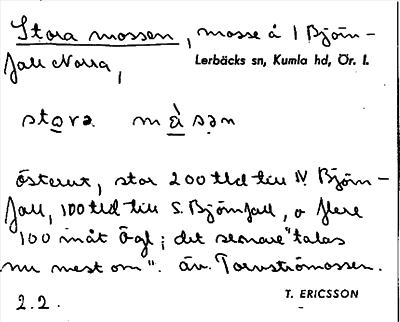 Stora mossen, mosse å 1 Björn-
fall Norra,
Lerbäcks sn, Kumla hd, Ör. l.
stora måsən
österut, stor 200 tld till N. Björn-
fall, 100 tld till S. Björnfall, o flere
100 inåt Ögl; det senare "talas
nu mest om". äv. Torvströmossen.
2.2.
T. ERICSSON